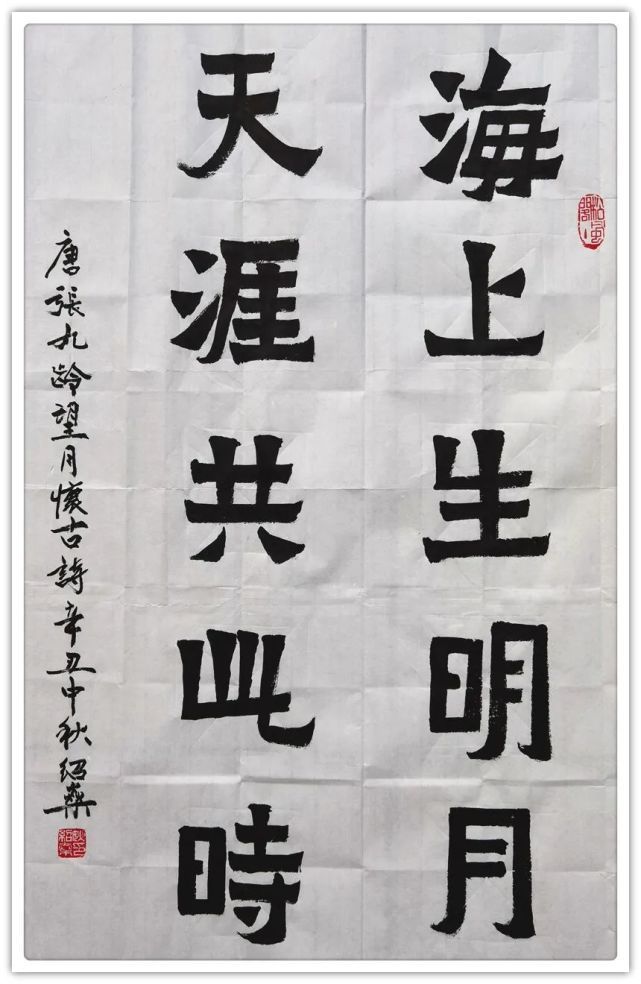 海上生明月
天涯共此時
唐張九齡望月懷古詩辛丑中秋紹燊